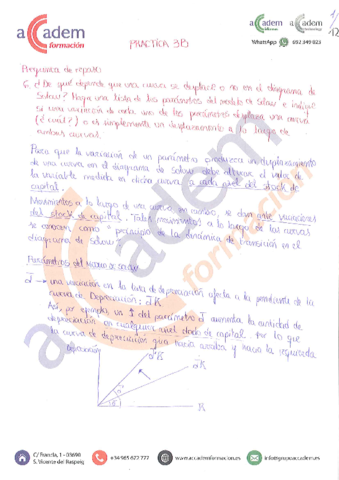 accadem
formación
accadem
accadem
1/12
WhatsApp 692 349 023
PRACTICA 3B
Preguntas de repaso
6. ¿De qué depende que una curva se desplace o no en el diagrama de
Solow? Haga una lista de los parámetros del modelo de Solow e indique
si una variación de cada uno de los parámetros desplaza una curva
(¿cuál?) o es simplemente un desplazamiento a lo largo de
ambas curvas.
Para que la variación de un parámetro produzca un desplazamiento
de una curva en el diagrama de Solow debe alterar el valor de
la variable medida en dicha curva, a cada nivel del stock de
capital.
Movimientos a lo largo de una curva, en cambio, se dan ante variaciones
del stock de capital. Tales movimientos a lo largo de las curvas
se conocen como " de la dinámica de transición en el
diagrama de Solow".
Parámetros del modelo de Solow
d → una variación en la tasa de depreciación afecta a la pendiente de la
curva de Depreciación: dK
Así, por ejemplo, un ↑ del parámetro d aumenta la cantidad de
depreciación en cualquier nivel dado de capital, por lo que
la curva de depreciación gira hacia arriba y hacia la izquierda
Depreciación
d'K
dK
K
accadem
formación
C/ Francia, 1 - 03690
S. Vicente del Raspeig
+34 965 672 777
www.accademformacion.es
info@grupoaccadem.es